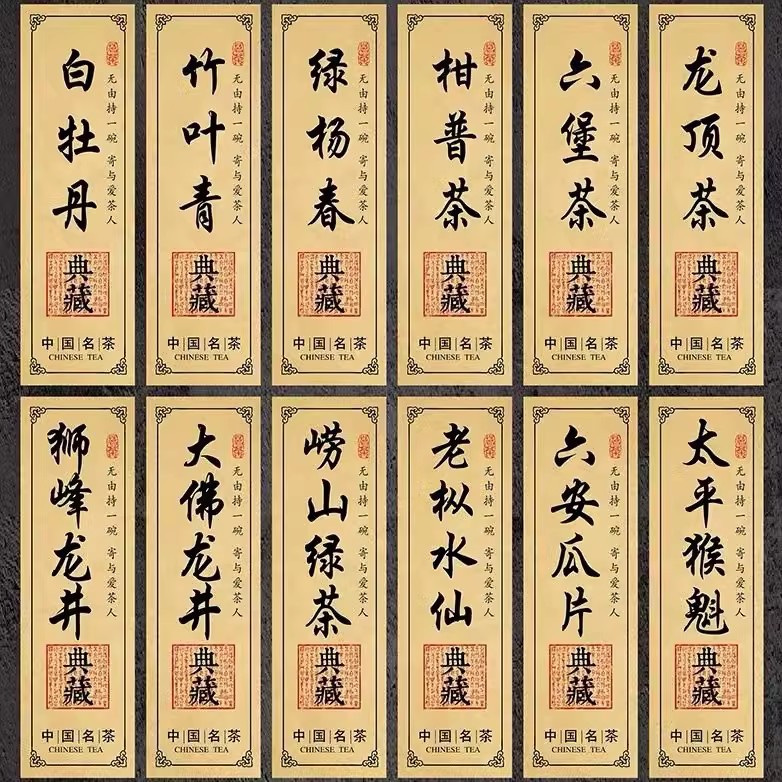 白牡丹
无由持一碗 寄与爱茶人
典藏
中国名茶
CHINESE TEA
竹叶青
无由持一碗 寄与爱茶人
典藏
中国名茶
CHINESE TEA
绿杨春
无由持一碗 寄与爱茶人
典藏
中国名茶
CHINESE TEA
柑普茶
无由持一碗 寄与爱茶人
典藏
中国名茶
CHINESE TEA
六堡茶
无由持一碗 寄与爱茶人
典藏
中国名茶
CHINESE TEA
龙顶茶
无由持一碗 寄与爱茶人
典藏
中国名茶
CHINESE TEA
狮峰龙井
无由持一碗 寄与爱茶人
典藏
中国名茶
CHINESE TEA
大佛龙井
无由持一碗 寄与爱茶人
典藏
中国名茶
CHINESE TEA
崂山绿茶
无由持一碗 寄与爱茶人
典藏
中国名茶
CHINESE TEA
老枞水仙
无由持一碗 寄与爱茶人
典藏
中国名茶
CHINESE TEA
六安瓜片
无由持一碗 寄与爱茶人
典藏
中国名茶
CHINESE TEA
太平猴魁
无由持一碗 寄与爱茶人
典藏
中国名茶
CHINESE TEA